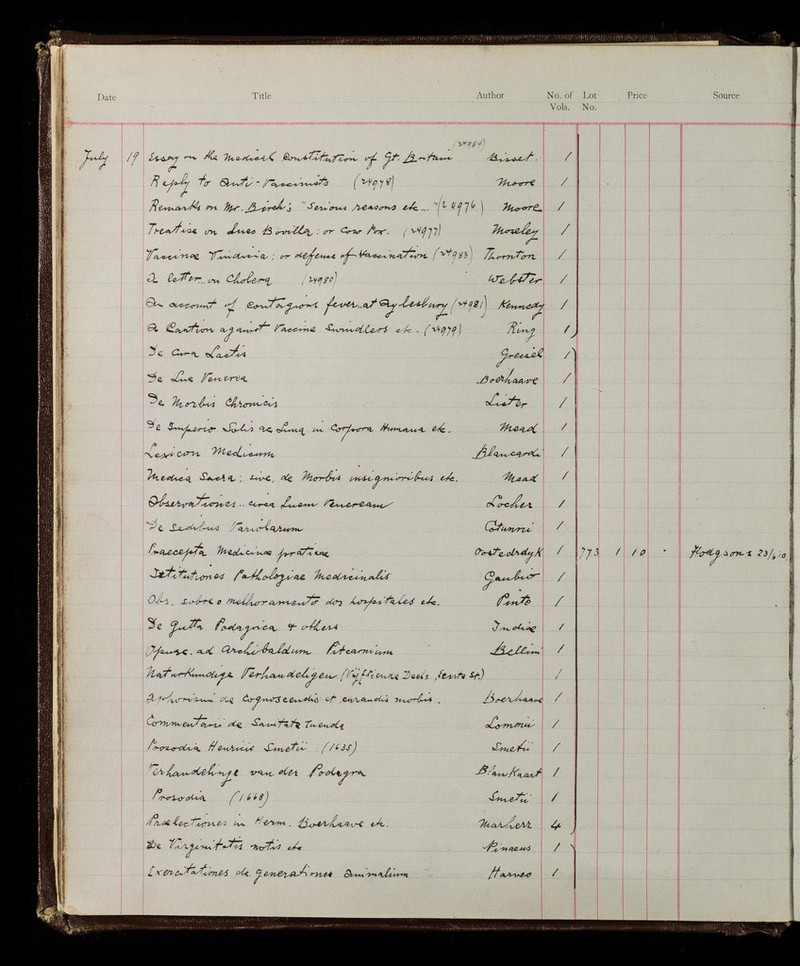 Date Title Author No. of Vols. Lot No. Price Source
July 19 Essay on the Medical Constitution of Gt. Britain (24984) Bisset. 1
Reply to Anti-Vaccinists (24978) Moore 1
Remarks on Mr. Birch's "Serious reasons etc..." (24976) Moore 1
Treatise on Lues Bovilla: or Cow Pox. (24977) Moseley 1
Vaccinae Vindicia: or defence of Vaccination (24983) Thornton 1
A letter.. on Cholera (24980) Webster 1
An account of Contagious fever..at Aylesbury (24981) Kennedy 1
A Caution against Vaccine Swindlers etc. (24979) Ring 1
De Cura Lactis 1
De Lue Venerea Boerhaave 1
De Morbis Chronicis Lister 1
De Imperio Solis ac Lunae in Corpora Humana etc. Mead 1
Lexicon Medicum Blancardi 1
Medica Sacra: sive, de Morbis insignioribus etc. Mead 1
Observationes.. circa Luem Veneream Locher 1
De Sedibus Variolarum Cotunnii 1
Praecepta Medicinae practicae Oosterdijk 1 773 1 10 " Hodgsons 23/6/10.
Institutiones Pathologiae Medicinalis Gaubio 1
Obs. sobre o melhoramento dos hospitales etc. Pinto 1
De Gutta Podagrica & others 1
Opusc. ad Archibaldum Pitcarnium Bellini 1
Natuurkundige Verhandeligen (Vijftiende Deels, Eerste St.) 1
Aphorismi de Cognoscendis et curandis morbis. Boerhaave 1
Commentarii de Sanitate Tuenda Lommii 1
Prosodia Henricii Smetii (1635) Smetii 1
Verhandelinge van der Podagra Blankaart 1
Prosodia (1668) Smetii 1
Praelectiones in Herm. Boerhaave etc. Marherr 4
De Virginitatis notis etc Pinaeus 1
Exercitationes de generatione animalium Harveo 1